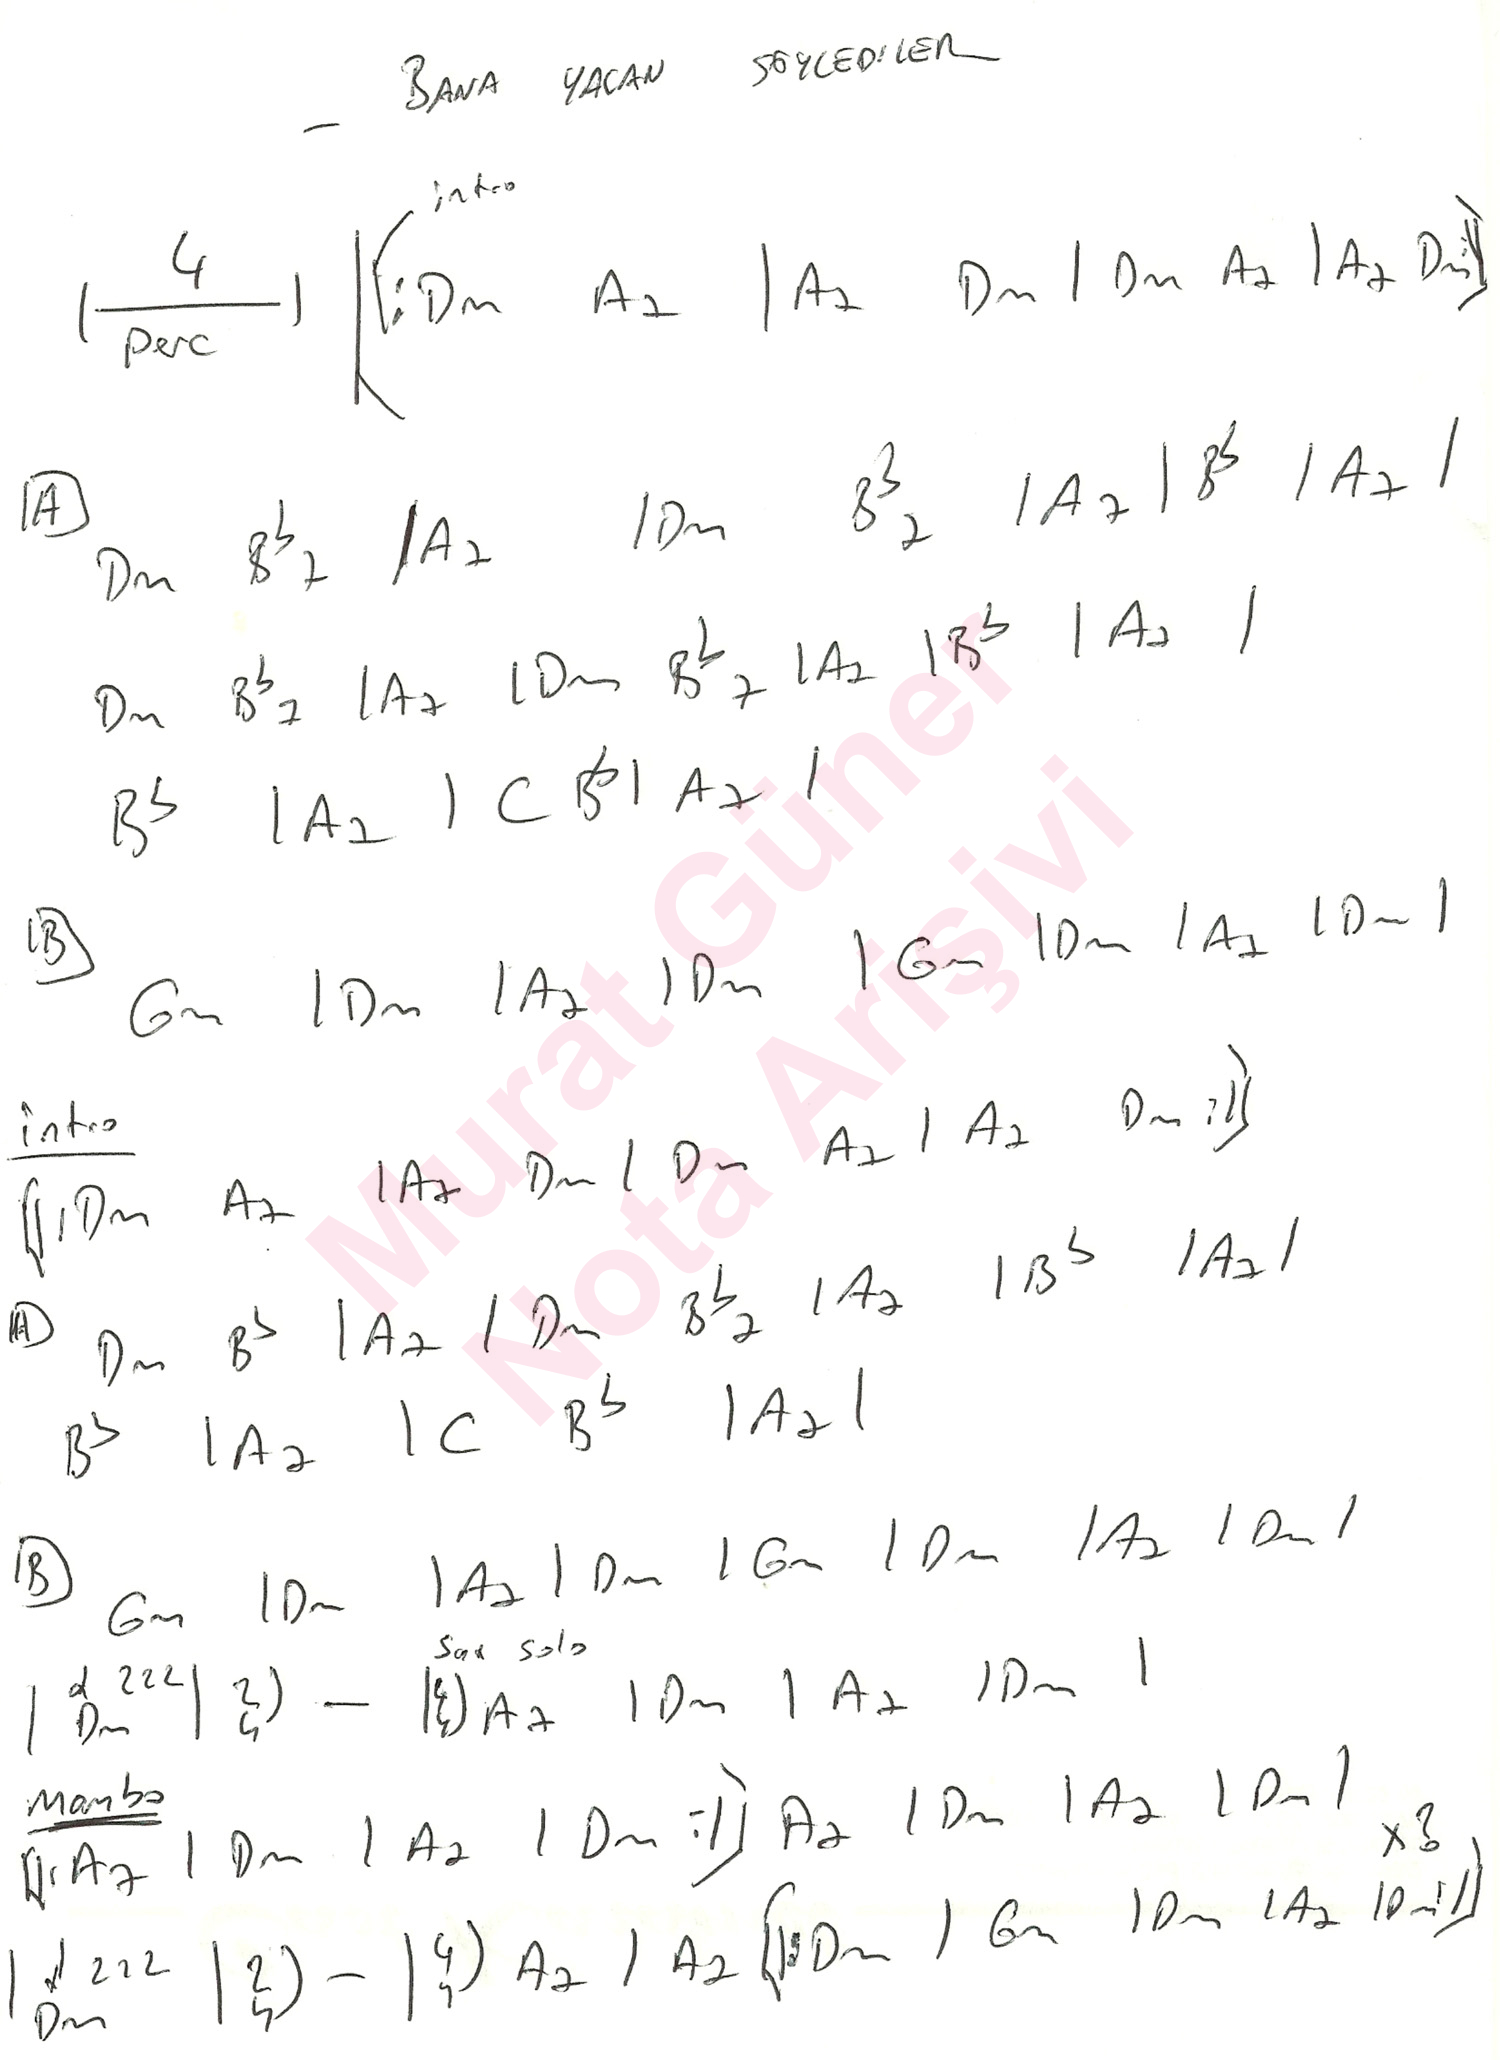 BANA YALAN SÖYLEDİLER
intro
| 4 perc | ||: Dm A7 | A7 Dm | Dm A7 | A7 Dm :||
A
Dm Bb7 | A7 | Dm Bb7 | A7 | Bb | A7 |
Dm Bb7 | A7 | Dm Bb7 | A7 | Bb | A7 |
Bb | A7 | C Bb | A7 |
B
Gm | Dm | A7 | Dm | Gm | Dm | A7 | Dm |
intro
||: Dm A7 | A7 Dm | Dm A7 | A7 Dm :||
A
Dm Bb | A7 | Dm Bb7 | A7 | Bb | A7 |
Bb | A7 | C Bb | A7 |
B
Gm | Dm | A7 | Dm | Gm | Dm | A7 | Dm |
sax solo
| Dm | 2/4) – | 4/4) A7 | Dm | A7 | Dm |
Mambo
||: A7 | Dm | A7 | Dm :|| A7 | Dm | A7 | Dm |
x3
| Dm | 2/4) – | 4/4) A7 | A7 ||: Dm | Gm | Dm | A7 | Dm :||
Murat Güner
Nota Arişivi